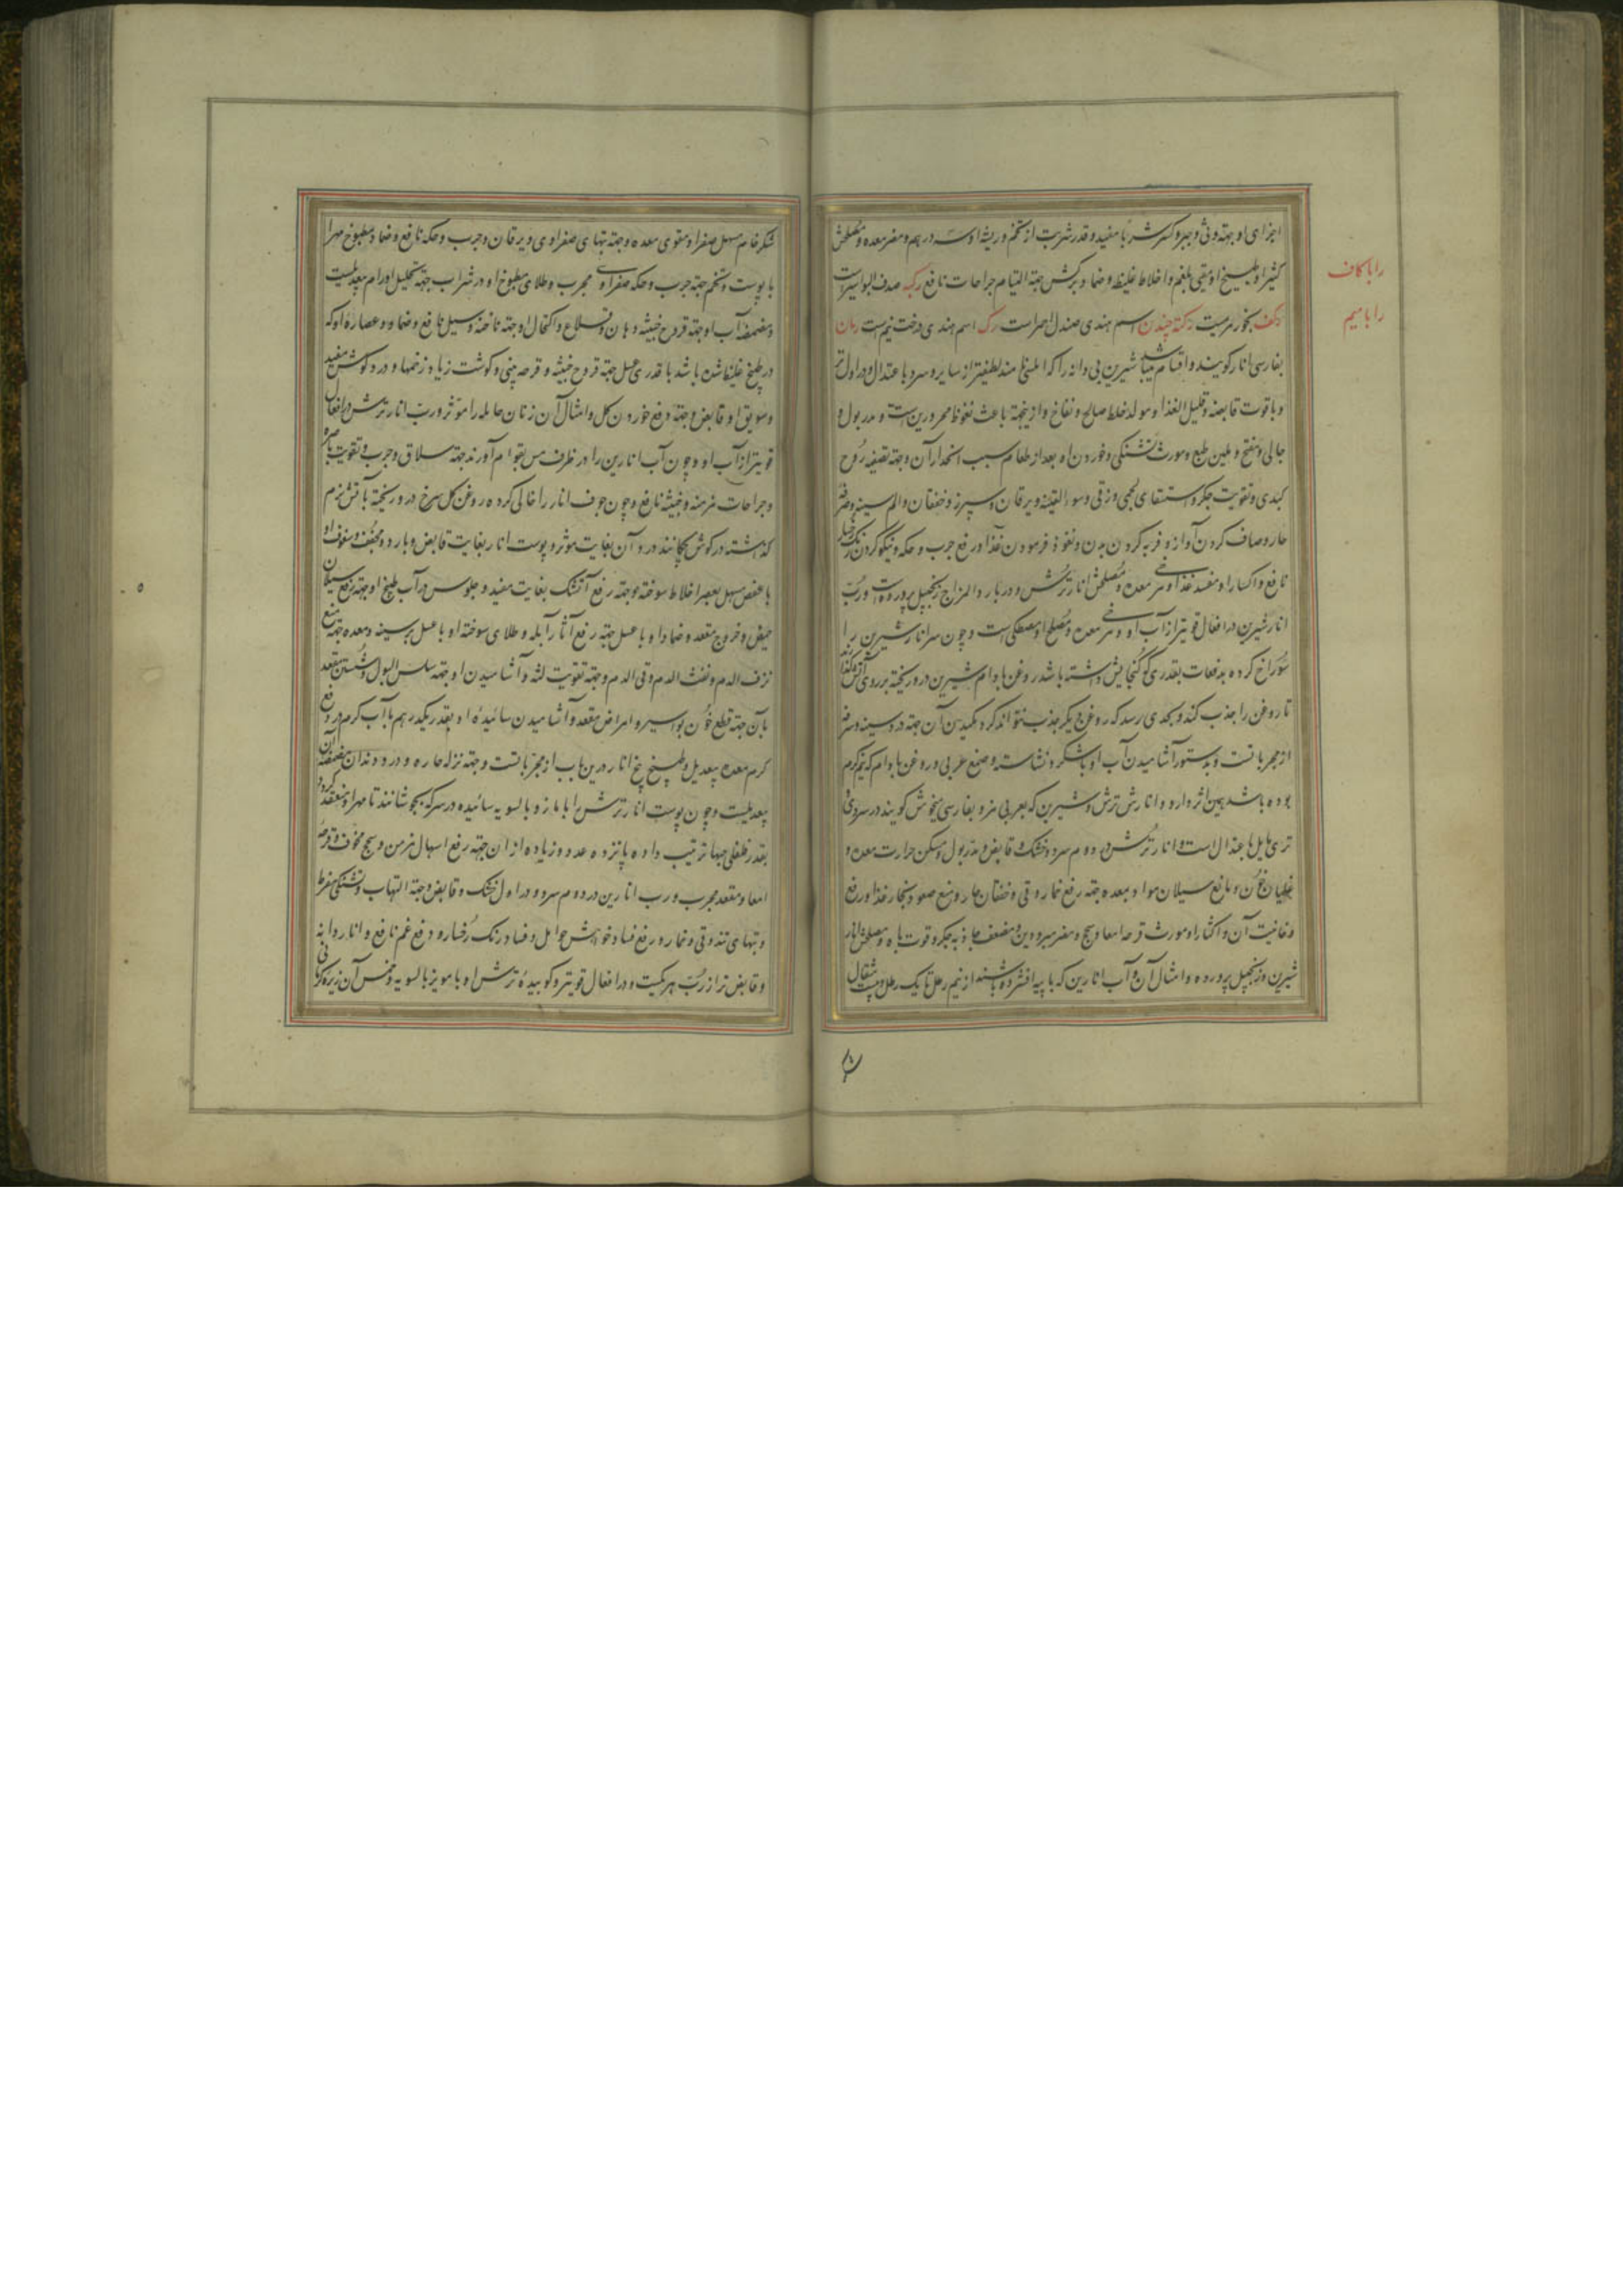 اجزای او جهته وثی و جبر و کسر شرباً مفید و قدر شربت از تخم و ریشه او سه درهم و مضر معده و مصلحش
کثیرا و طبیخ او مقیی بلغم و اخلاط غلیظ و ضماد برگش جهته التیام جراحات نافع رکبه صدف البواسیر است
رکف بخور مریمست رکته چندن اسم هندی صندل احمر است رک اسم هندی درخت نیم است رمان
بفارسی انار گویند و اقسام میباشد شیرین بی دانه را که املیسی نامند لطیفتر از سایر و سرد باعتدال و در اول تر
و باقوت قابضه و قلیل الغذا و مولد خلط صالح و نفاخ و از این جهة باعث نعوظ محرورین است و مدر بول و
جالی و مفتح و ملین طبع و مورث تشنگی و خوردن او بعد از طعام سبب انحدار آن و جهته تصفیه روح
کبدی و تقویت جگر و استسقای لحمی و زقی و سوء القنیه و یرقان و سپرز و خفقان و الم سینه و سرفه
حار و صاف کردن آواز و فربه کردن بدن و نفوذ فرمودن غذا و رفع جرب و حکه و نیکو کردن رنگ رخسار
نافع و اکثار او مفسد غذا و مرخی معده و مصلحش انار ترش و در بارد المزاج زنجبیل پرورده است و رب
انار شیرین در افعال قویتر از آب او و مرخی معده و مصلح او مصطکی است و چون سر انار شیرین را
سوراخ کرده بدفعات بقدری که گنجایش داشته باشد روغن بادام شیرین در او ریخته بر روی آتش گذارند
تا روغن را جذب کند و بحدی رسد که روغن دیگر جذب نتواند کرد مکیدن آن جهته درد سینه و سرفه
از مجربات است و بدستور آشامیدن آب او با شکر و نشاسته و صمغ عربی و روغن بادام که نیم گرم
بوده باشد همین اثر دارد و انارش ترش و شیرین که بعربی مز و بفارسی میخوش گویند در سردی و
تری مایل باعتدال است و انار ترش در دوم سرد و خشک و قابض و مدر بول و مسکن حرارت معده و
غلیان خون و مانع سیلان مواد بمعده جهته رفع خمار و قی و خفقان حار و منع صعود بخار غذا و رفع
دخانیت آن و اکثار او مورث قرحه امعا و سحج و مضر مبرودین و مضعف جاذبه جگر و قوت باه و مصلحش انار
شیرین و زنجبیل پرورده و امثال آن و آب انارین که با پیه افشرده باشند از نیم رطل تا یک رطل و بیست مثقال
را با کاف
را با میم
شکر خام مسهل صفرا و مقوی معده و جهته تبهای صفراوی و یرقان و جرب و حکه نافع و ضماد مطبوخ مهرا
با پوست و تخم جهته جرب و حکه صفراوی مجرب و طلای مطبوخ او در شراب جهته تحلیل اورام بیعدیلست
و مضمضه آب او جهته قروح خبیثه دهان و قلاع و اکتحال او جهته ناخنه و سبل نافع و ضماد و عصاره او که
در طبخ غلیظ شده باشد با قدری عسل جهته قروح خبیثه و قرحه بینی و گوشت زیاد زخمها و درد گوش مفید
و سویق او قابض و جهته رفع خوردن گل و امثال آن زنان حامله را مؤثر و رب انار ترش در افعال
قویتر از آب او و چون آب انارین را در ظرف مس بقوام آورند جهته سلاق و جرب و تقویت باصره
و جراحات مزمنه و خبیثه نافع و چون جوف انار را خالی کرده روغن گل سرخ در او ریخته بآتش نرم
گذاشته در گوش بچکانند درد آن بغایت مؤثر و پوست انار بغایت قابض و بارد و مجفف و سفوف او
با عفص مسهل بعصر اخلاط سوخته و جهته رفع آتشک بغایت مفید و جلوس در آب طبیخ او جهته رفع سیلان
حیض و خروج مقعد و ضماد او با عسل جهته رفع آثار آبله و طلای سوخته او با عسل بر سینه و معده جهته منع
نزف الدم و نفث الدم و قی الدم و جهته تقویت لثه و آشامیدن او جهته سلس البول و شستن مقعد
بآن جهته قطع خون بواسیر و امراض مقعد و آشامیدن سائیده او بقدر یکدرهم با آب گرم در رفع
کرم معده بیعدیل و طبیخ بیخ انار در این باب از مجربات است و جهته نزله حاره و درد دندان مضمضه آن
بیعدیلست و چون پوست انار ترش را با مازو بالسویه سائیده در سرکه بجوشانند تا مهرا و منعقد گردد
بقدر فلفلی حبها ترتیب داده پانزده عدد و زیاده از آن جهته رفع اسهال مزمن و سحج مخوف و قرحه
امعا و مقعد مجرب و رب انارین در دوم سرد و در اول خشک و قابض و جهته التهاب و تشنگی مفرط
و تبهای تند و قی و خمار و رفع فساد خواهش حوامل و فساد رنگ رخساره و رفع غم نافع و اناردانه
و قابض تر از رب هر یکیست و در افعال قویتر و کوبیده ترش او با مویز بالسویه و خمس آن زیره کرمانی